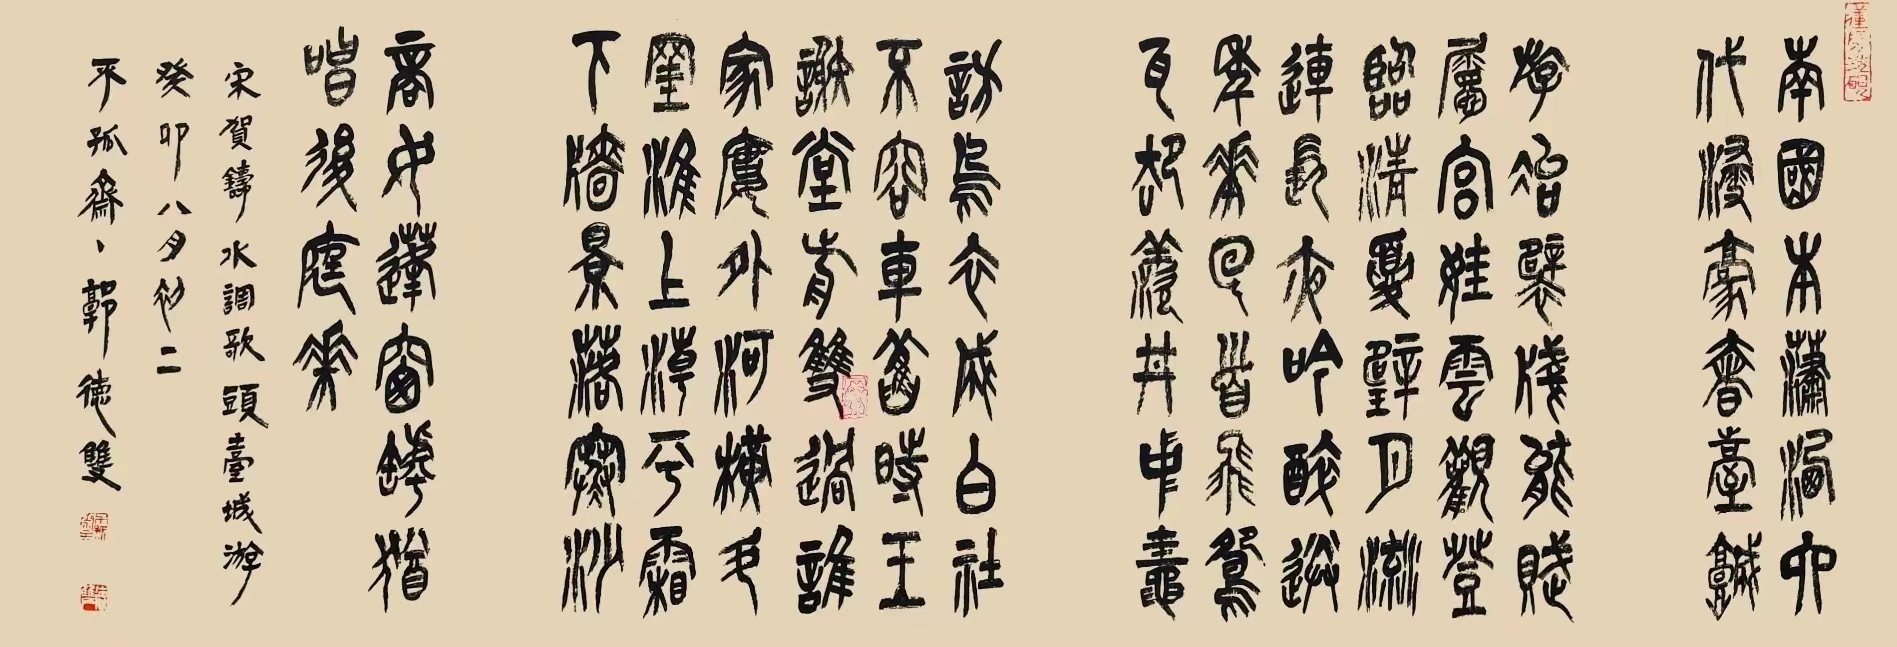 南國本瀟洒六
代浸豪奢臺城
游冶襞牋能賦
屬宮娃雲觀登
臨清夏璧月流
連長夜吟醉送
年華回首飛鴛
瓦却羨井中鼃
訪烏衣成白社
不容車舊時王
謝堂前雙過誰
家樓外河橫斗
罣淮上潮平霜
下檣景落寒沙
商女蓬窗罅猶
唱後庭華
宋賀鑄水調歌頭臺城游
癸卯八月初二
不孤齋郭德雙